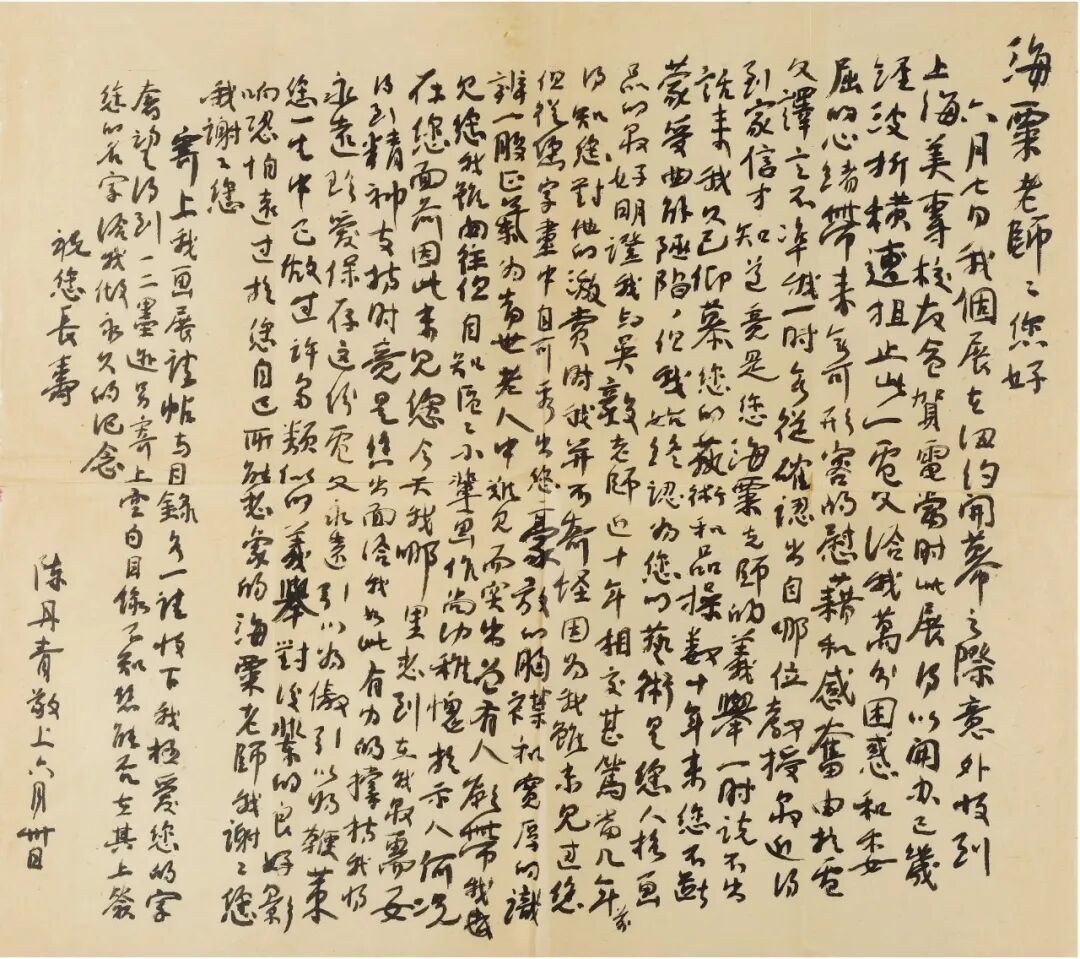 海粟老師：您好
六月七日我個展在纽约開幕之際意外收到
上海美專校友会賀電當时此展得以開办已幾
經波折横遭狙止此一電文給我萬分困惑和委
屈的心绪带来無可形容的慰藉和感奮由於電
文譯意不準我一时無從確認出自哪位教授最近得
到家信才知道竟是您海粟老師的義舉一时说不出
話来我久已仰慕您的藝術和品操数十年来您不断
蒙受曲解陋陷，但我始终認为您的藝術是您人格画
品的最好明證我与吴 老師近十年相交甚篤當几年前
得知您對他的激賞时我并不奇怪因为我虽未見过您
但從您字畫中自可秀出您豪放的胸襟和寬厚的識
辨一股正氣为當世老人中难見而突出曾有人願带我去
見您我雖向往但自知區區小輩画作尚幼稚愧於示人何况
在您面前因此未見您今天我哪里想到在我最需要
得到精神支持时竟是您出面給我如此有力的撑持我將
永遠珍愛保存这份電文永遠引以为傲引以为鞭策
您一生中已做过許多類似的義舉對後輩的良好影
响恐怕遠过於您自己所能想象的海粟老師我謝謝您
我謝謝您
寄上我画展請帖与目録各一請收下我極愛您的字
奢望得到一二墨迹另寄上空白目錄不知您能否在其上簽
您的名字給我做永久的纪念
祝您長壽
陈丹青敬上六月卅日